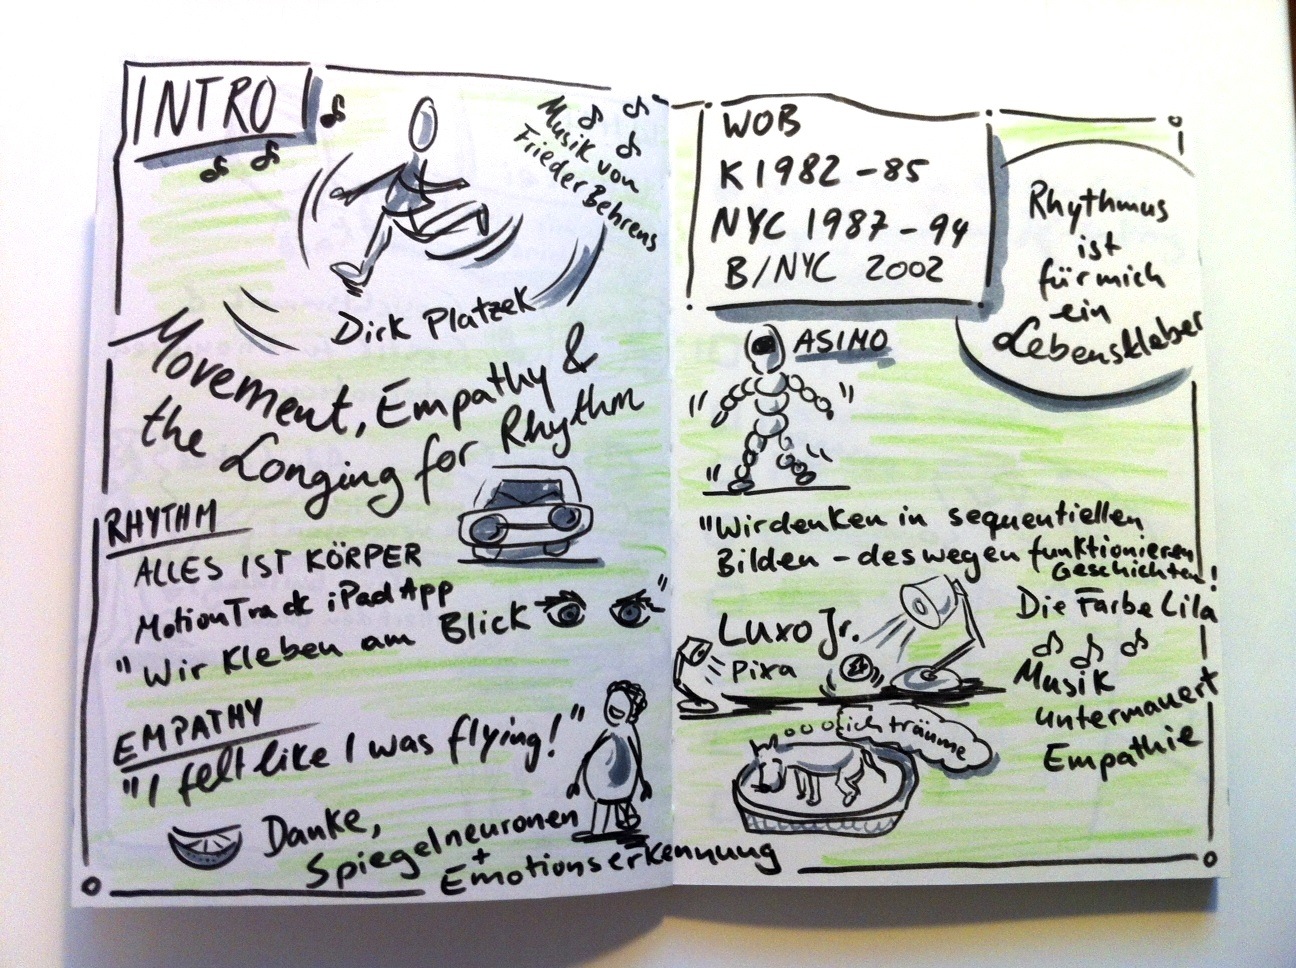 INTRO
Musik von
Frieder Behrens
Dirk Platzek
Movement, Empathy &
the Longing for Rhythm
RHYTHM
ALLES IST KÖRPER
MotionTrack iPad App
"Wir kleben am Blick"
EMPATHY
"I felt like I was flying!"
Danke,
Spiegelneuronen
+
Emotionserkennung
WOB
K 1982 - 85
NYC 1987 - 94
B/NYC 2002
Rhythmus
ist
für mich
ein
Lebenskleber
ASIMO
"Wir denken in sequentiellen
Bilden - deswegen funktionieren
Geschichten!
Die Farbe Lila
Luxo Jr.
Pixa
Musik
untermauert
Empathie
ich träume